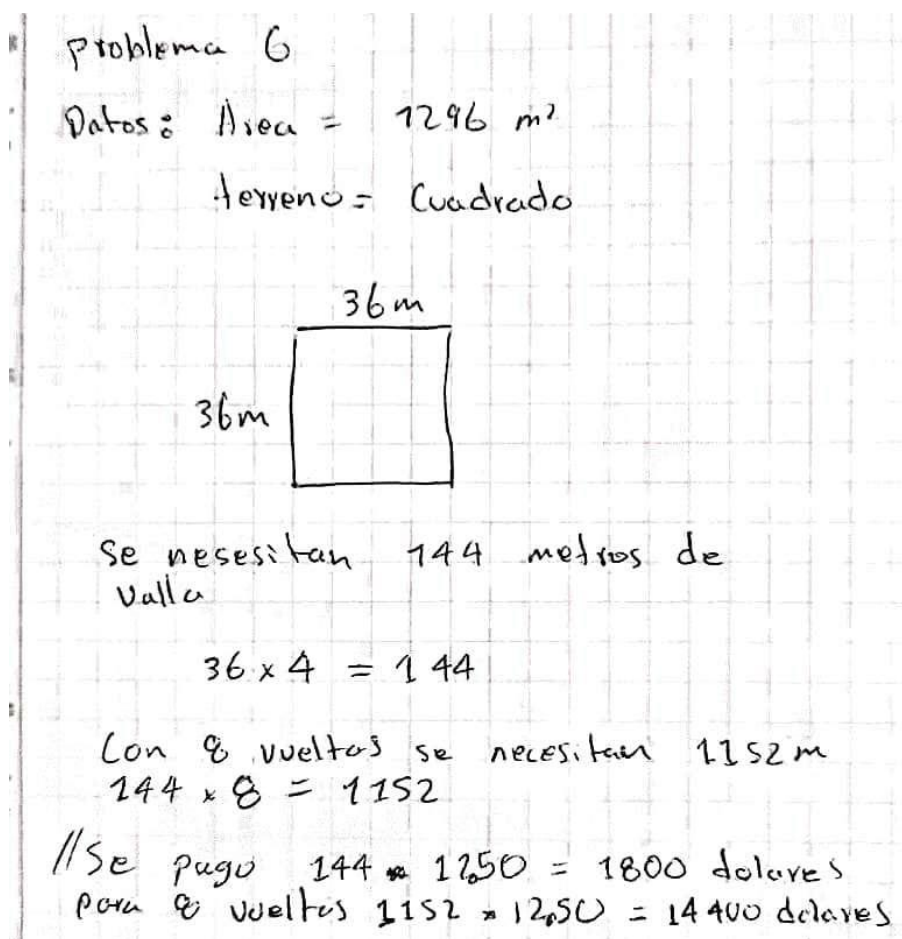 problema 6
Datos: Area = 1296 m²
terreno = Cuadrado
36 m
36m
se nesesitan 144 metros de
valla
36 x 4 = 144
Con 8 vueltas se necesitan 1152 m
144 x 8 = 1152
//Se pago 144 * 12,50 = 1800 dolares
para 8 vueltas 1152 * 12,50 = 14400 dolares